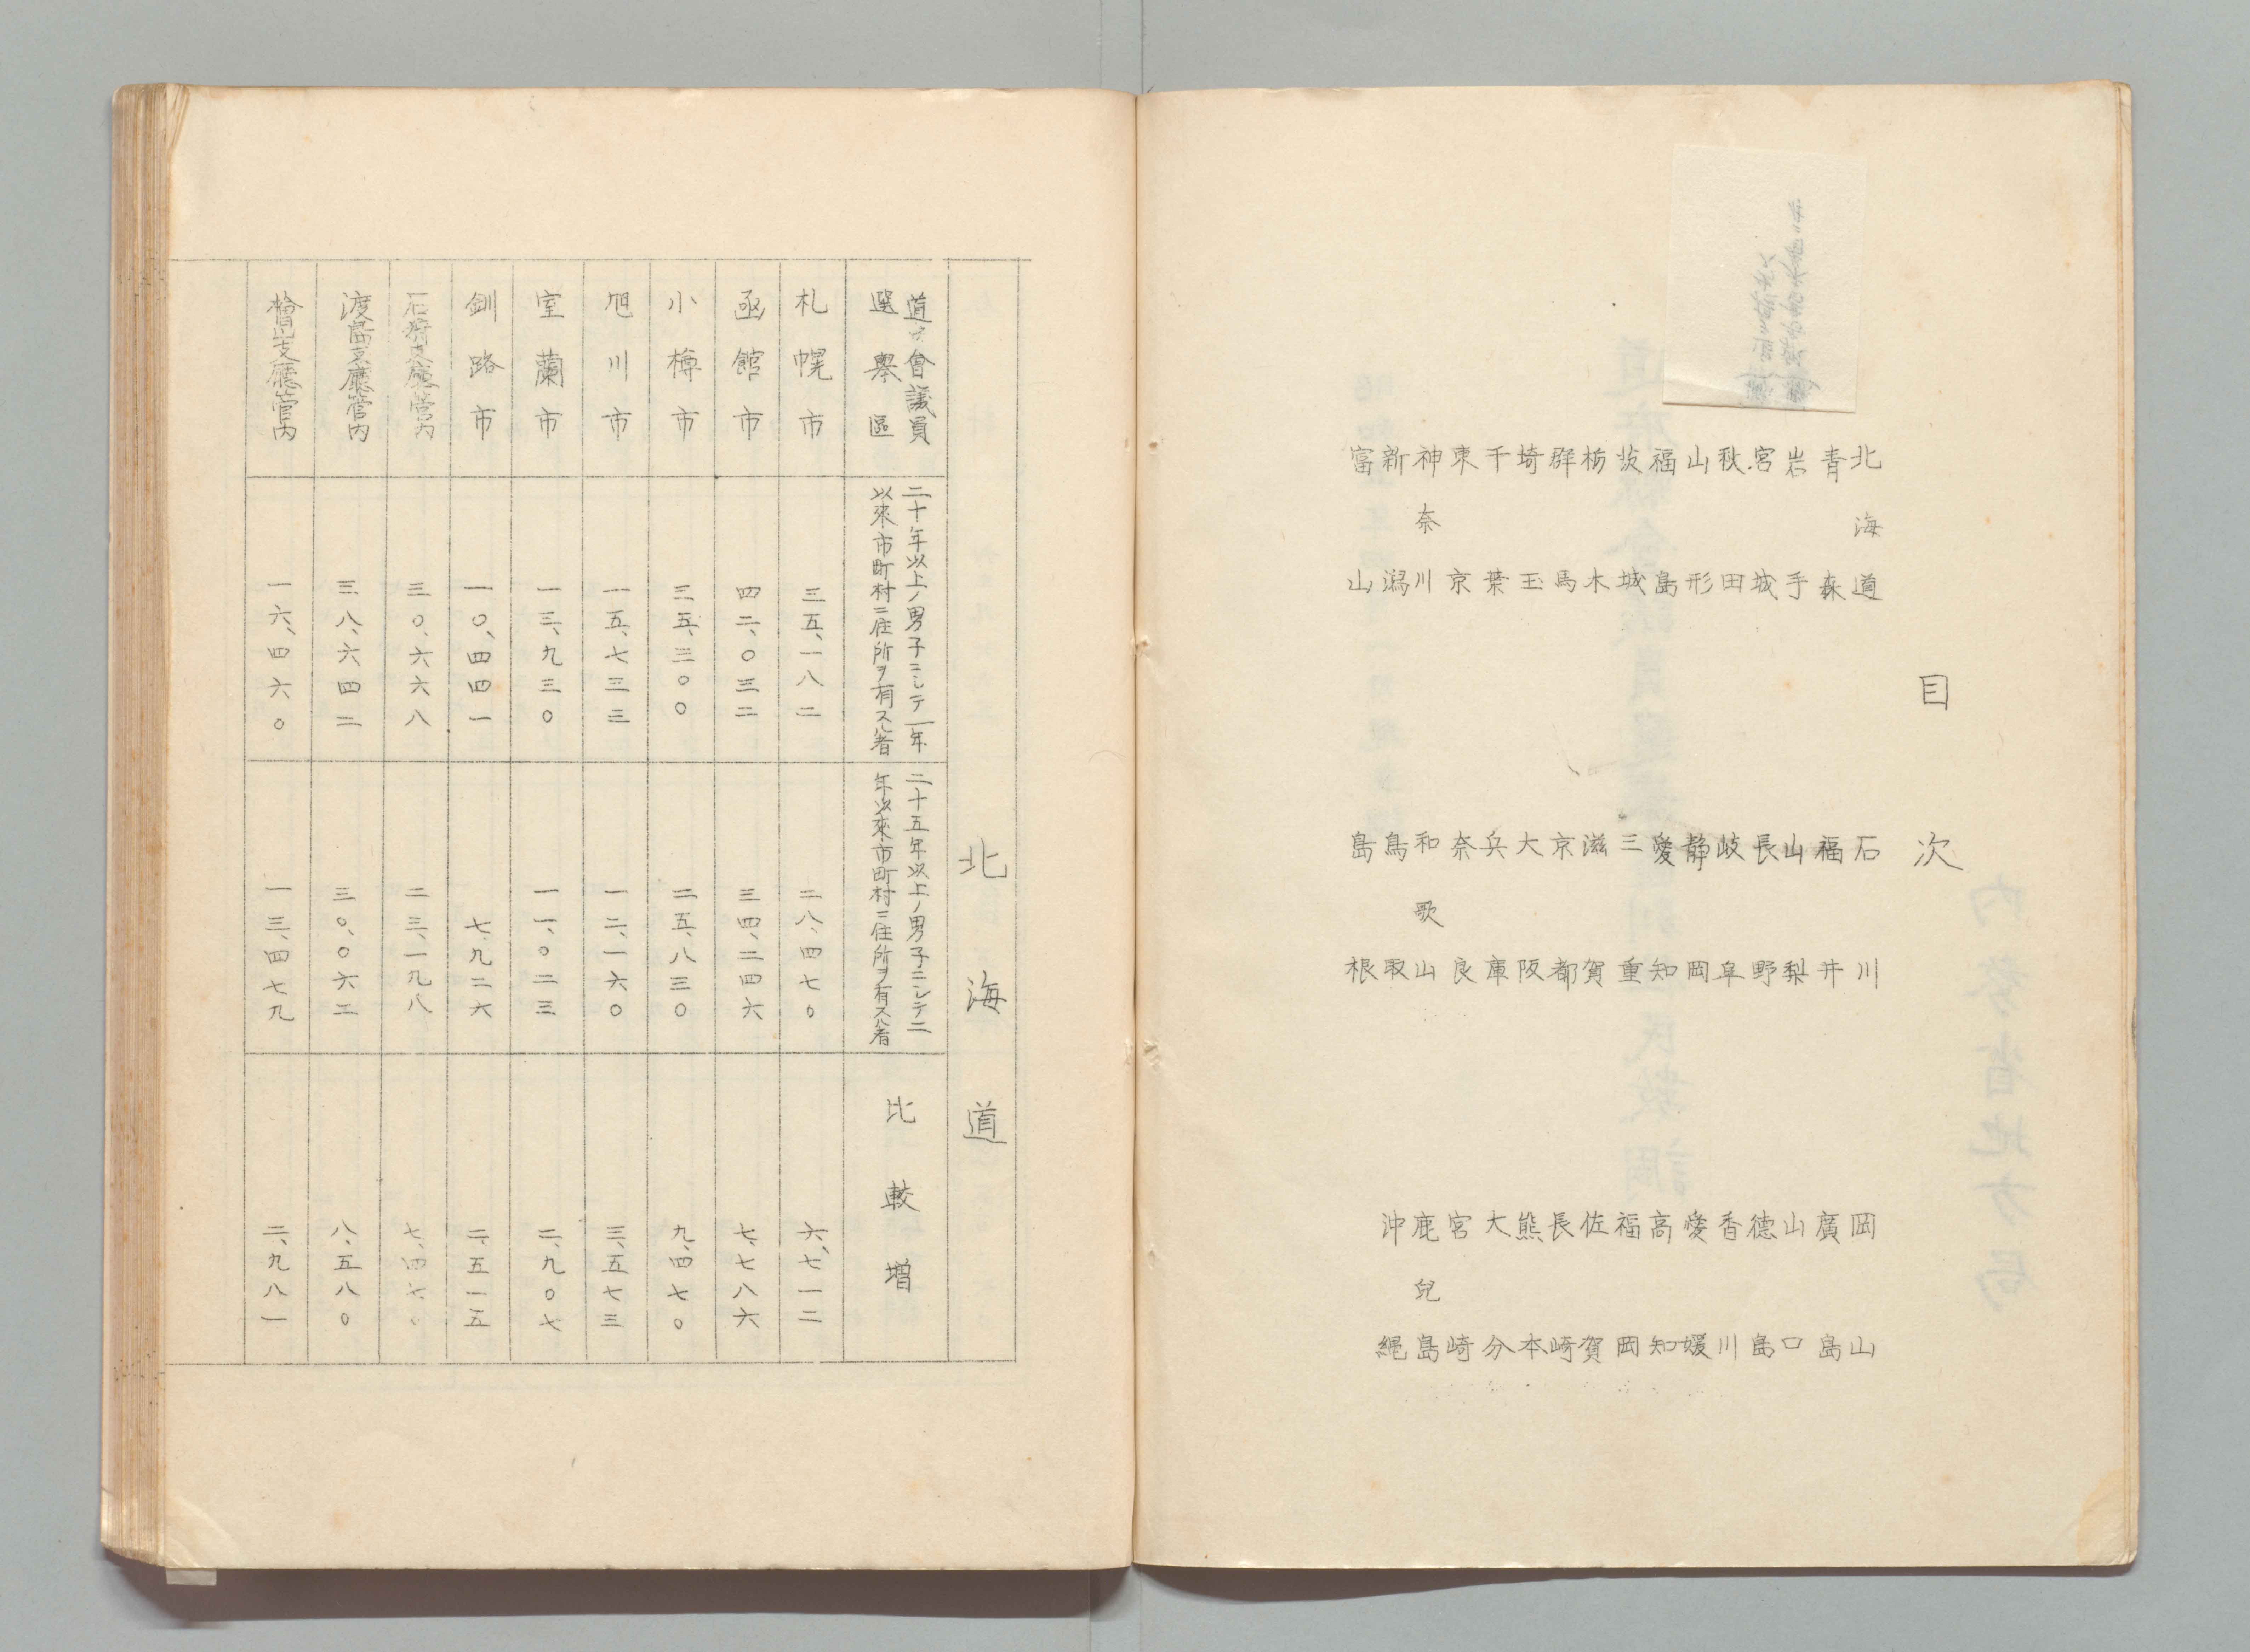 目次
北海道
青森
岩手
宮城
秋田
山形
福島
茨城
栃木
群馬
埼玉
千葉
東京
神奈川
新潟
富山
石川
福井
山梨
長野
岐阜
静岡
愛知
三重
滋賀
京都
大阪
兵庫
奈良
和歌山
鳥取
島根
岡山
廣島
山口
徳島
香川
愛媛
高知
福岡
佐賀
長崎
熊本
大分
宮崎
鹿兒島
沖縄
北海道
道府會議員
選擧區
二十年以上ノ男子ニシテ一年
以來市町村ニ住所ヲ有スル者
二十五年以上ノ男子ニシテ二
年以來市町村ニ住所ヲ有スル者
比較増
札幌市 三五、一八二 二八、四七〇 六、七一二
函館市 四二、〇三二 三四、二四六 七、七八六
小樽市 三五、三〇〇 二五、八三〇 九、四七〇
旭川市 一五、七三三 一二、一六〇 三、五七三
室蘭市 一三、九三〇 一一、〇二三 二、九〇七
釧路市 一〇、四四一 七、九二六 二、五一五
石狩支廳管内 三〇、六六八 二三、一九八 七、四七〇
渡島支廳管内 三八、六四二 三〇、〇六二 八、五八〇
檜山支廳管内 一六、四六〇 一三、四七九 二、九八一